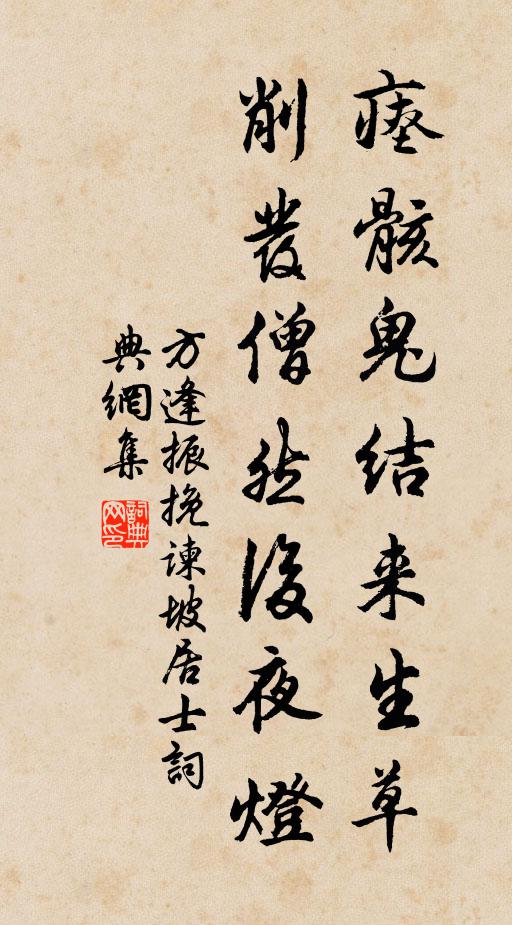 瘞骸鬼結来生草
削發僧然後夜燈
方逢振挽諌坡居士詞
典網集
詞典网印